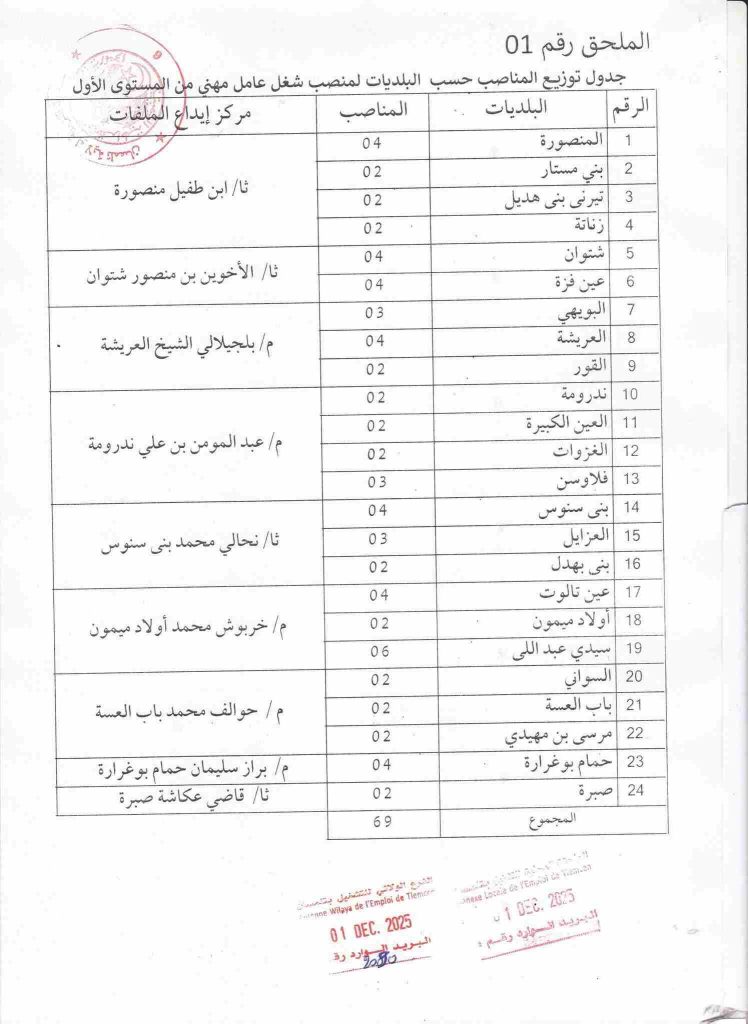 الملحق رقم 01
جدول توزيع المناصب حسب البلديات لمنصب شغل عامل مهني من المستوى الأول
الرقم البلديات المناصب مركز إيداع الملفات
1 المنصورة 04
2 بني مستار 02
3 تيرنى بنى هديل 02
4 زناتة 02
ثا/ ابن طفيل منصورة
5 شتوان 04
6 عين فزة 04
ثا/ الأخوين بن منصور شتوان
7 البويهي 03
8 العريشة 04
9 القور 02
م/ بلجيلالي الشيخ العريشة
10 ندرومة 02
11 العين الكبيرة 02
12 الغزوات 02
13 فلاوسن 03
م/ عبد المومن بن علي ندرومة
14 بنى سنوس 04
15 العزايل 03
16 بنى بهدل 02
ثا/ نحالي محمد بنى سنوس
17 عين تالوت 04
18 أولاد ميمون 02
19 سيدي عبد اللى 06
م/ خربوش محمد أولاد ميمون
20 السواني 02
21 باب العسة 02
22 مرسى بن مهيدي 02
م/ حوالف محمد باب العسة
23 حمام بوغرارة 04 م/ براز سليمان حمام بوغرارة
24 صبرة 02 ثا/ قاضي عكاشة صبرة
المجموع 69
الفرع الولائي للتشغيل بتلمسان
Wilaya de l'Emploi de Tlemcen
01 DEC. 2025
البريد الوارد
Locale de l'Emploi de Tlemcen
01 DEC. 2025
البريد الوارد رقم :